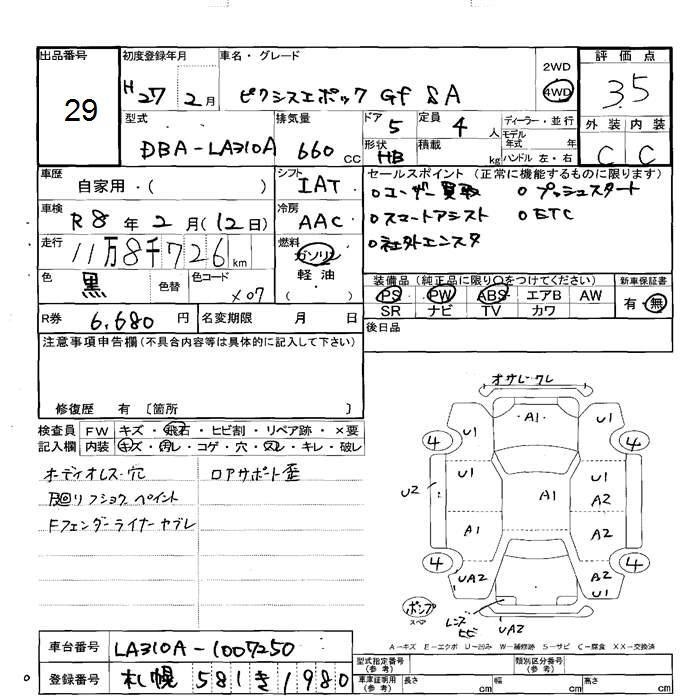 出品番号
29
初度登録年月
H27年2月
車名・グレード
ピクシスエポック Gf SA
2WD
4WD
評価点
3.5
型式
DBA-LA310A
排気量
660 CC
ドア
5
定員
4人
形状
HB
積載
kg
ディーラー・並行
モデル
年式 年
ハンドル 左・右
外装 内装
C C
車歴
自家用・( )
シフト
IAT
セールスポイント (正常に機能するものに限ります)
○ユーザー買取 ○プッシュスタート
○スマートアシスト ○ETC
○社外エンスタ
車検
R8年2月(12日)
冷房
AAC
走行
11万8千726km
燃料
ガソリン
軽油
( )
色
黒
色替
色コード
X07
装備品 (純正品に限り○をつけてください)
PS PW ABS エアB AW
SR ナビ TV カワ
新車保証書
有・無
R券
6,680円
名変期限 月 日
後日品
注意事項申告欄 (不具合内容等は具体的に記入して下さい)
修復歴 有 〔箇所 〕
検査員 FW キズ・飛石・ヒビ割・リペア跡・×要
記入欄 内装 キズ・汚レ・コゲ・穴・スレ・キレ・破レ
オーディオレス・穴
ロアサポート歪
リフショク ペイント
Fフェンダーライナーヤブレ
オサレ・ワレ
A1
U1
U1
4
4
U1
U1
U2
A1
A2
A1
A2
4
4
UA2
A2
U1
ポンプ
スペア
レンズ
ヒビ
UA2
A-キズ E-エクボ U-凹み W-補修跡 S-サビ C-腐食 XX-交換済
車台番号
LA310A-1007250
登録番号
札幌 581 き 1980
型式指定番号
(参考)
類別区分番号
(参考)
車庫証明用
(参考)
長さ cm
幅 cm
高さ cm